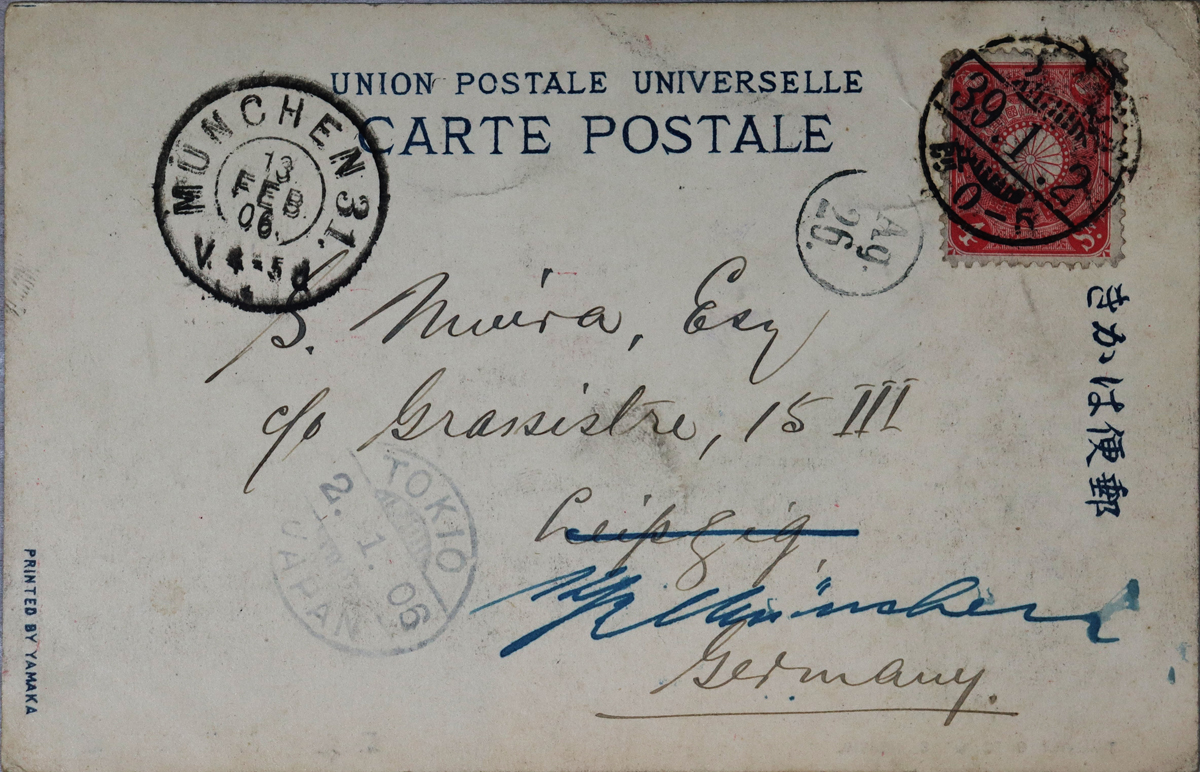 UNION POSTALE UNIVERSELLE
CARTE POSTALE
MÜNCHEN 31.
13
FEB
06.
V. 4-5
39.1.2
0-5
4 Sn.
Ag.
26.
きかは便郵
S. Miura, Esq
c/o Grassistre, 15 III
Leipzig,
München
Germany.
TOKIO
2. 1. 06
JAPAN
PRINTED BY YAMAKA